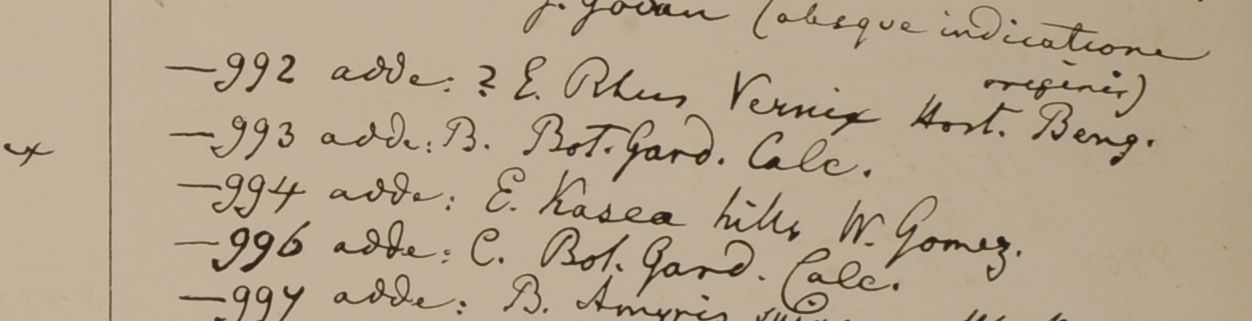 J. Govan (absque indicatione
originis)
—992 adde: ? E. Rhus Vernix Hort. Beng.
ex
—993 adde: B. Bot. Gard. Calc.
—994 adde: E. Kasea hills W. Gomez.
—996 adde: C. Bot. Gard. Calc.
—997 adde: B. Amyris